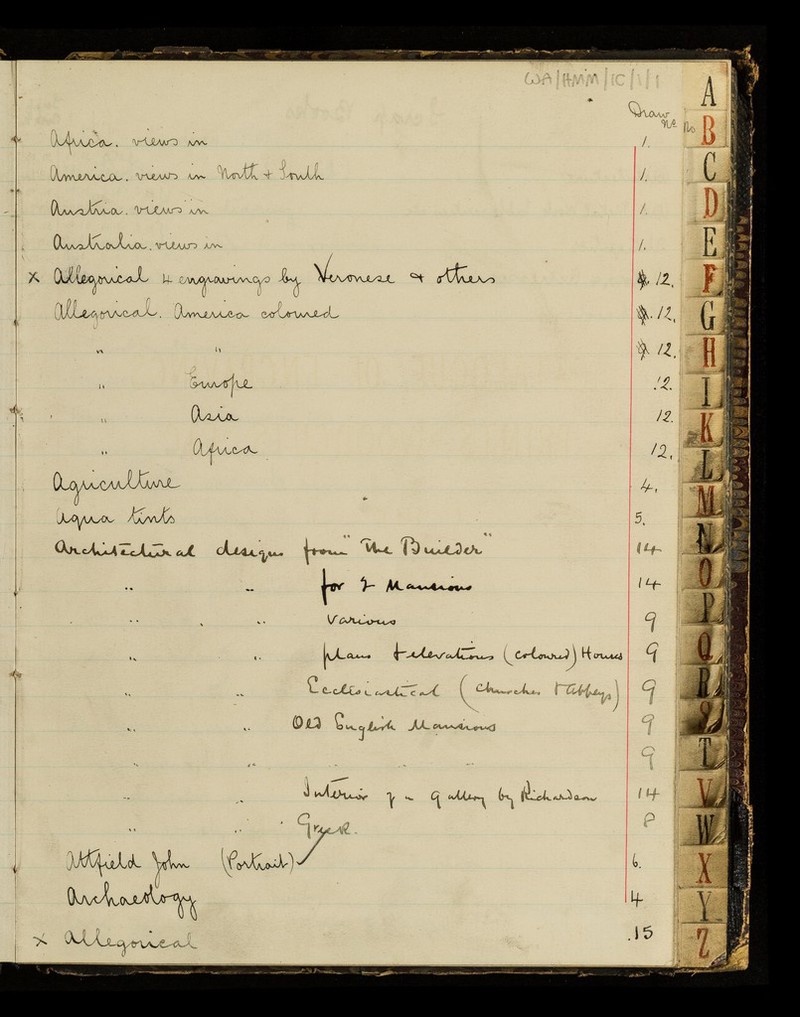 WA/HMM/IC/1/1
Draw
No. No
Africa. views in 1.
America. views in North + South 1.
Austria. views in 1.
Australia. views in 1.
x Allegorical 4 engravings by Veronese & others 12.
Allegorical. America coloured 12.
" " 12.
" Europe 12.
" Asia 12.
" Africa 12.
Agriculture 4.
Aqua tints 5.
Architectural designs from "The Builder" 14
" " for 2 Mansions 14
" " Various 9
" " plans & elevations (coloured) Houses 9
" " Ecclesiastical (Churches & Abbeys) 9
" " Old English Mansions 9
" " " " " 9
" " Interior of a Gallery by Richardson 14
" " " Greek. P
Attfield John (Portrait) 6.
Archaeology 4
x Allegorical .15
A
B
C
D
E
F
G
H
I
K
L
M
N
O
P
Q
R
S
T
V
W
X
Y
Z